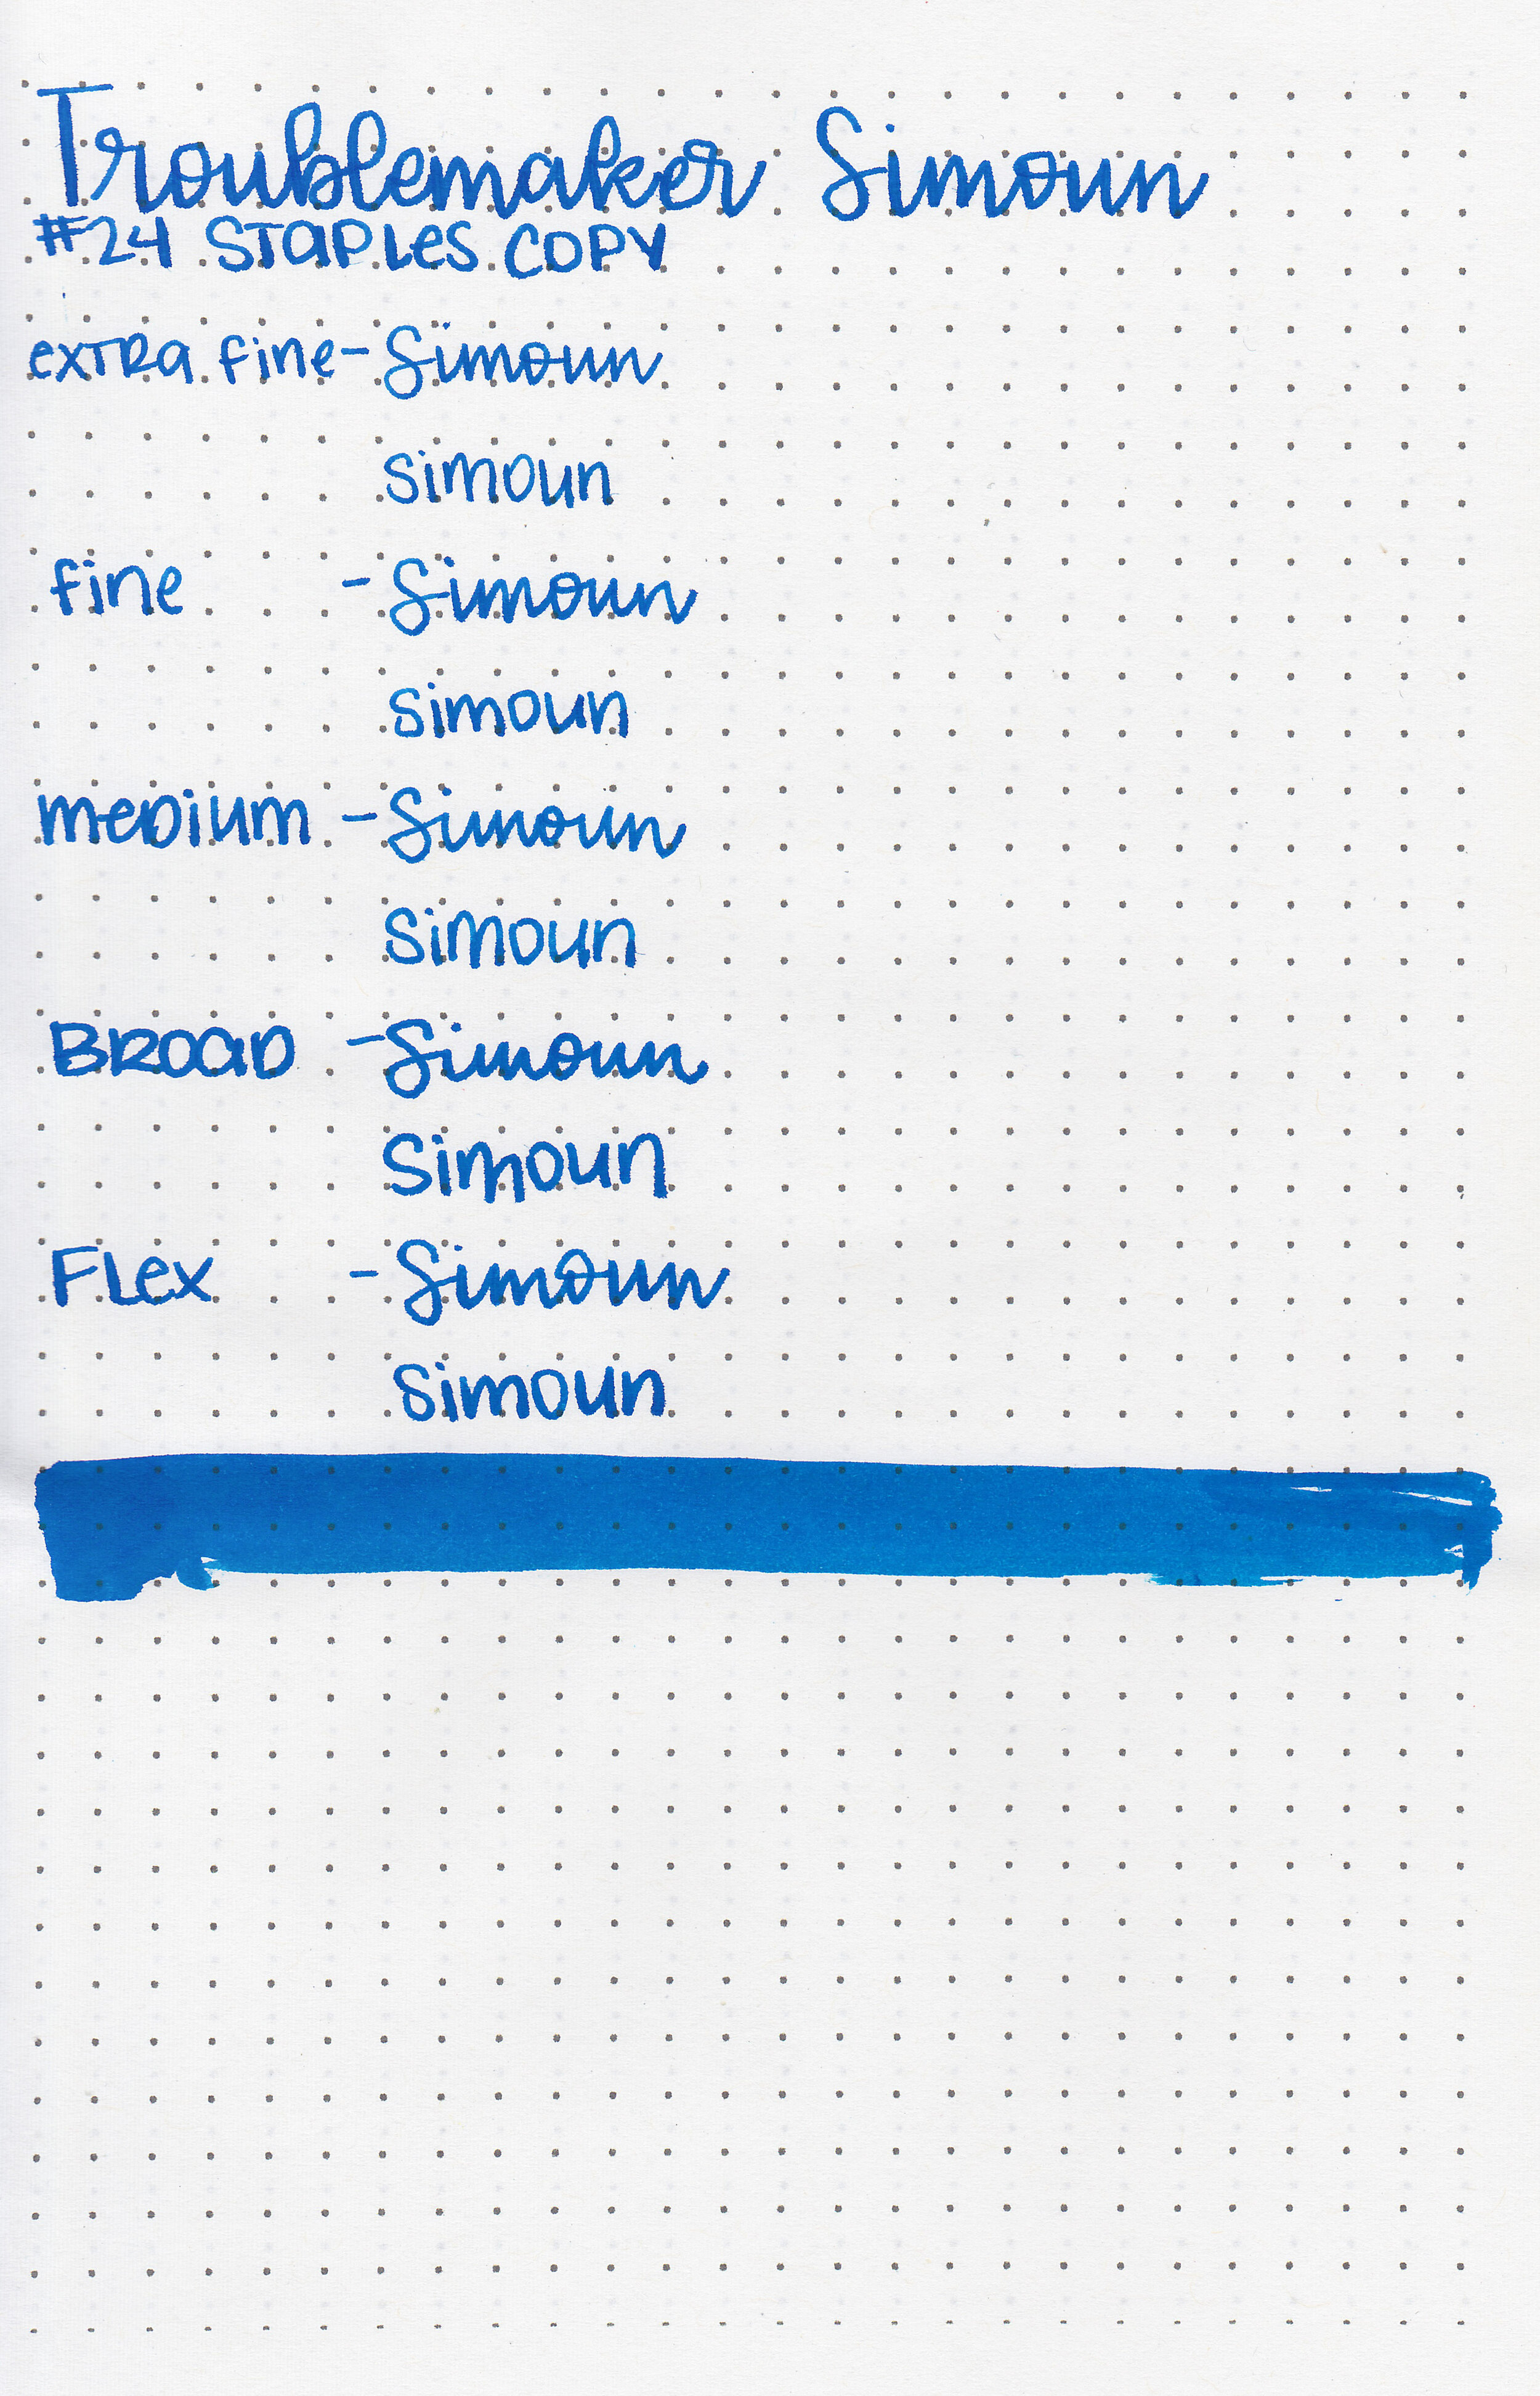 Troublemaker Simoun
#24 STAPLES COPY
extra fine - Simoun
simoun
fine - Simoun
simoun
medium - Simoun
simoun
BROAD - Simoun
Simoun
FLex - Simoun
simoun